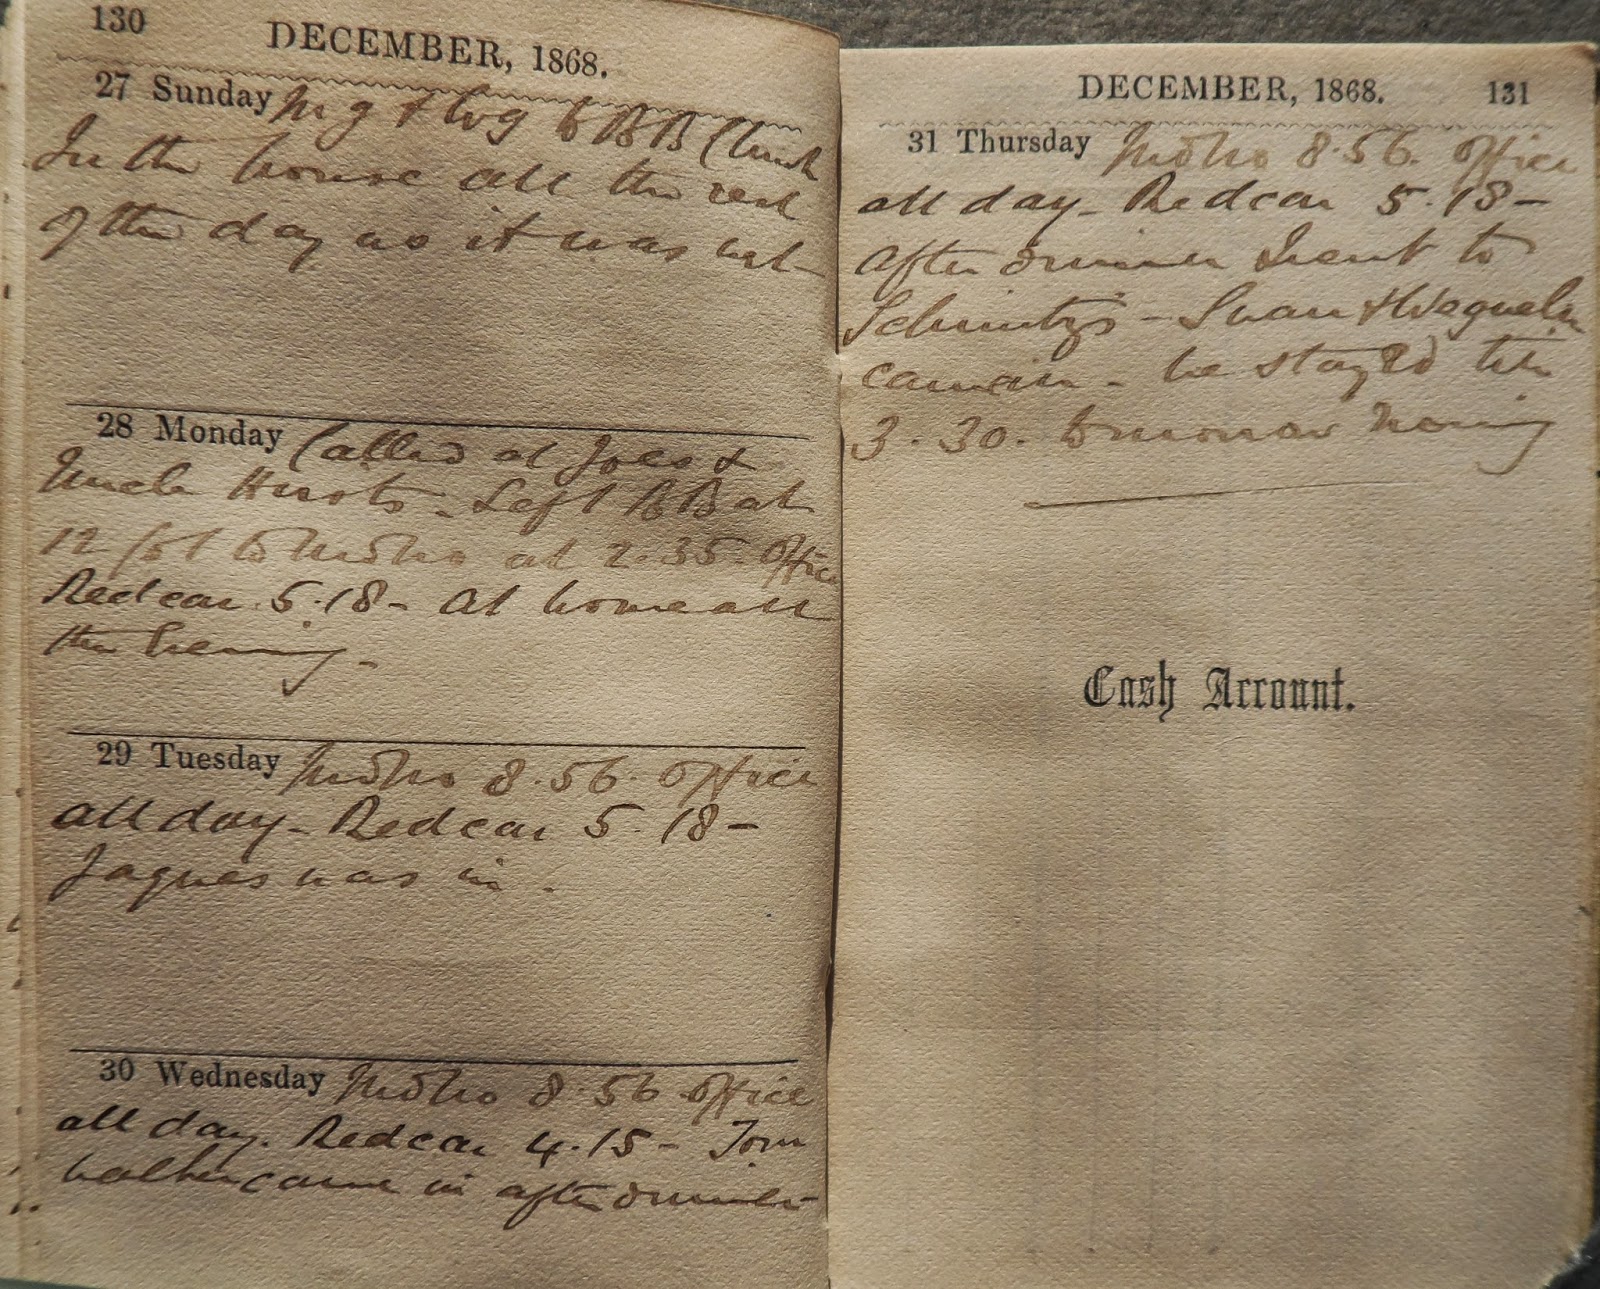 130
DECEMBER, 1868.
27 Sunday Mg & Evg to BB Church
In the house all the rest
of the day as it was wet-
28 Monday Called at Joes &
Uncle Hirsts - Left BB at
12 got to Mdbro at 2.35 - Office
Redcar 5.18 - At home all
the Evening -
29 Tuesday Mdbro 8.56. Office
all day - Redcar 5.18 -
Jaques was in -
30 Wednesday Mdbro 8.56 Office
all day. Redcar 4.15 - Tom
came in after dinner -
DECEMBER, 1868.
131
31 Thursday Mdbro 8.56. Office
all day - Redcar 5.18 -
After dinner I went to
- Swan &
came in - he stayed till
3.30. tomorrow Morning
Cash Account.